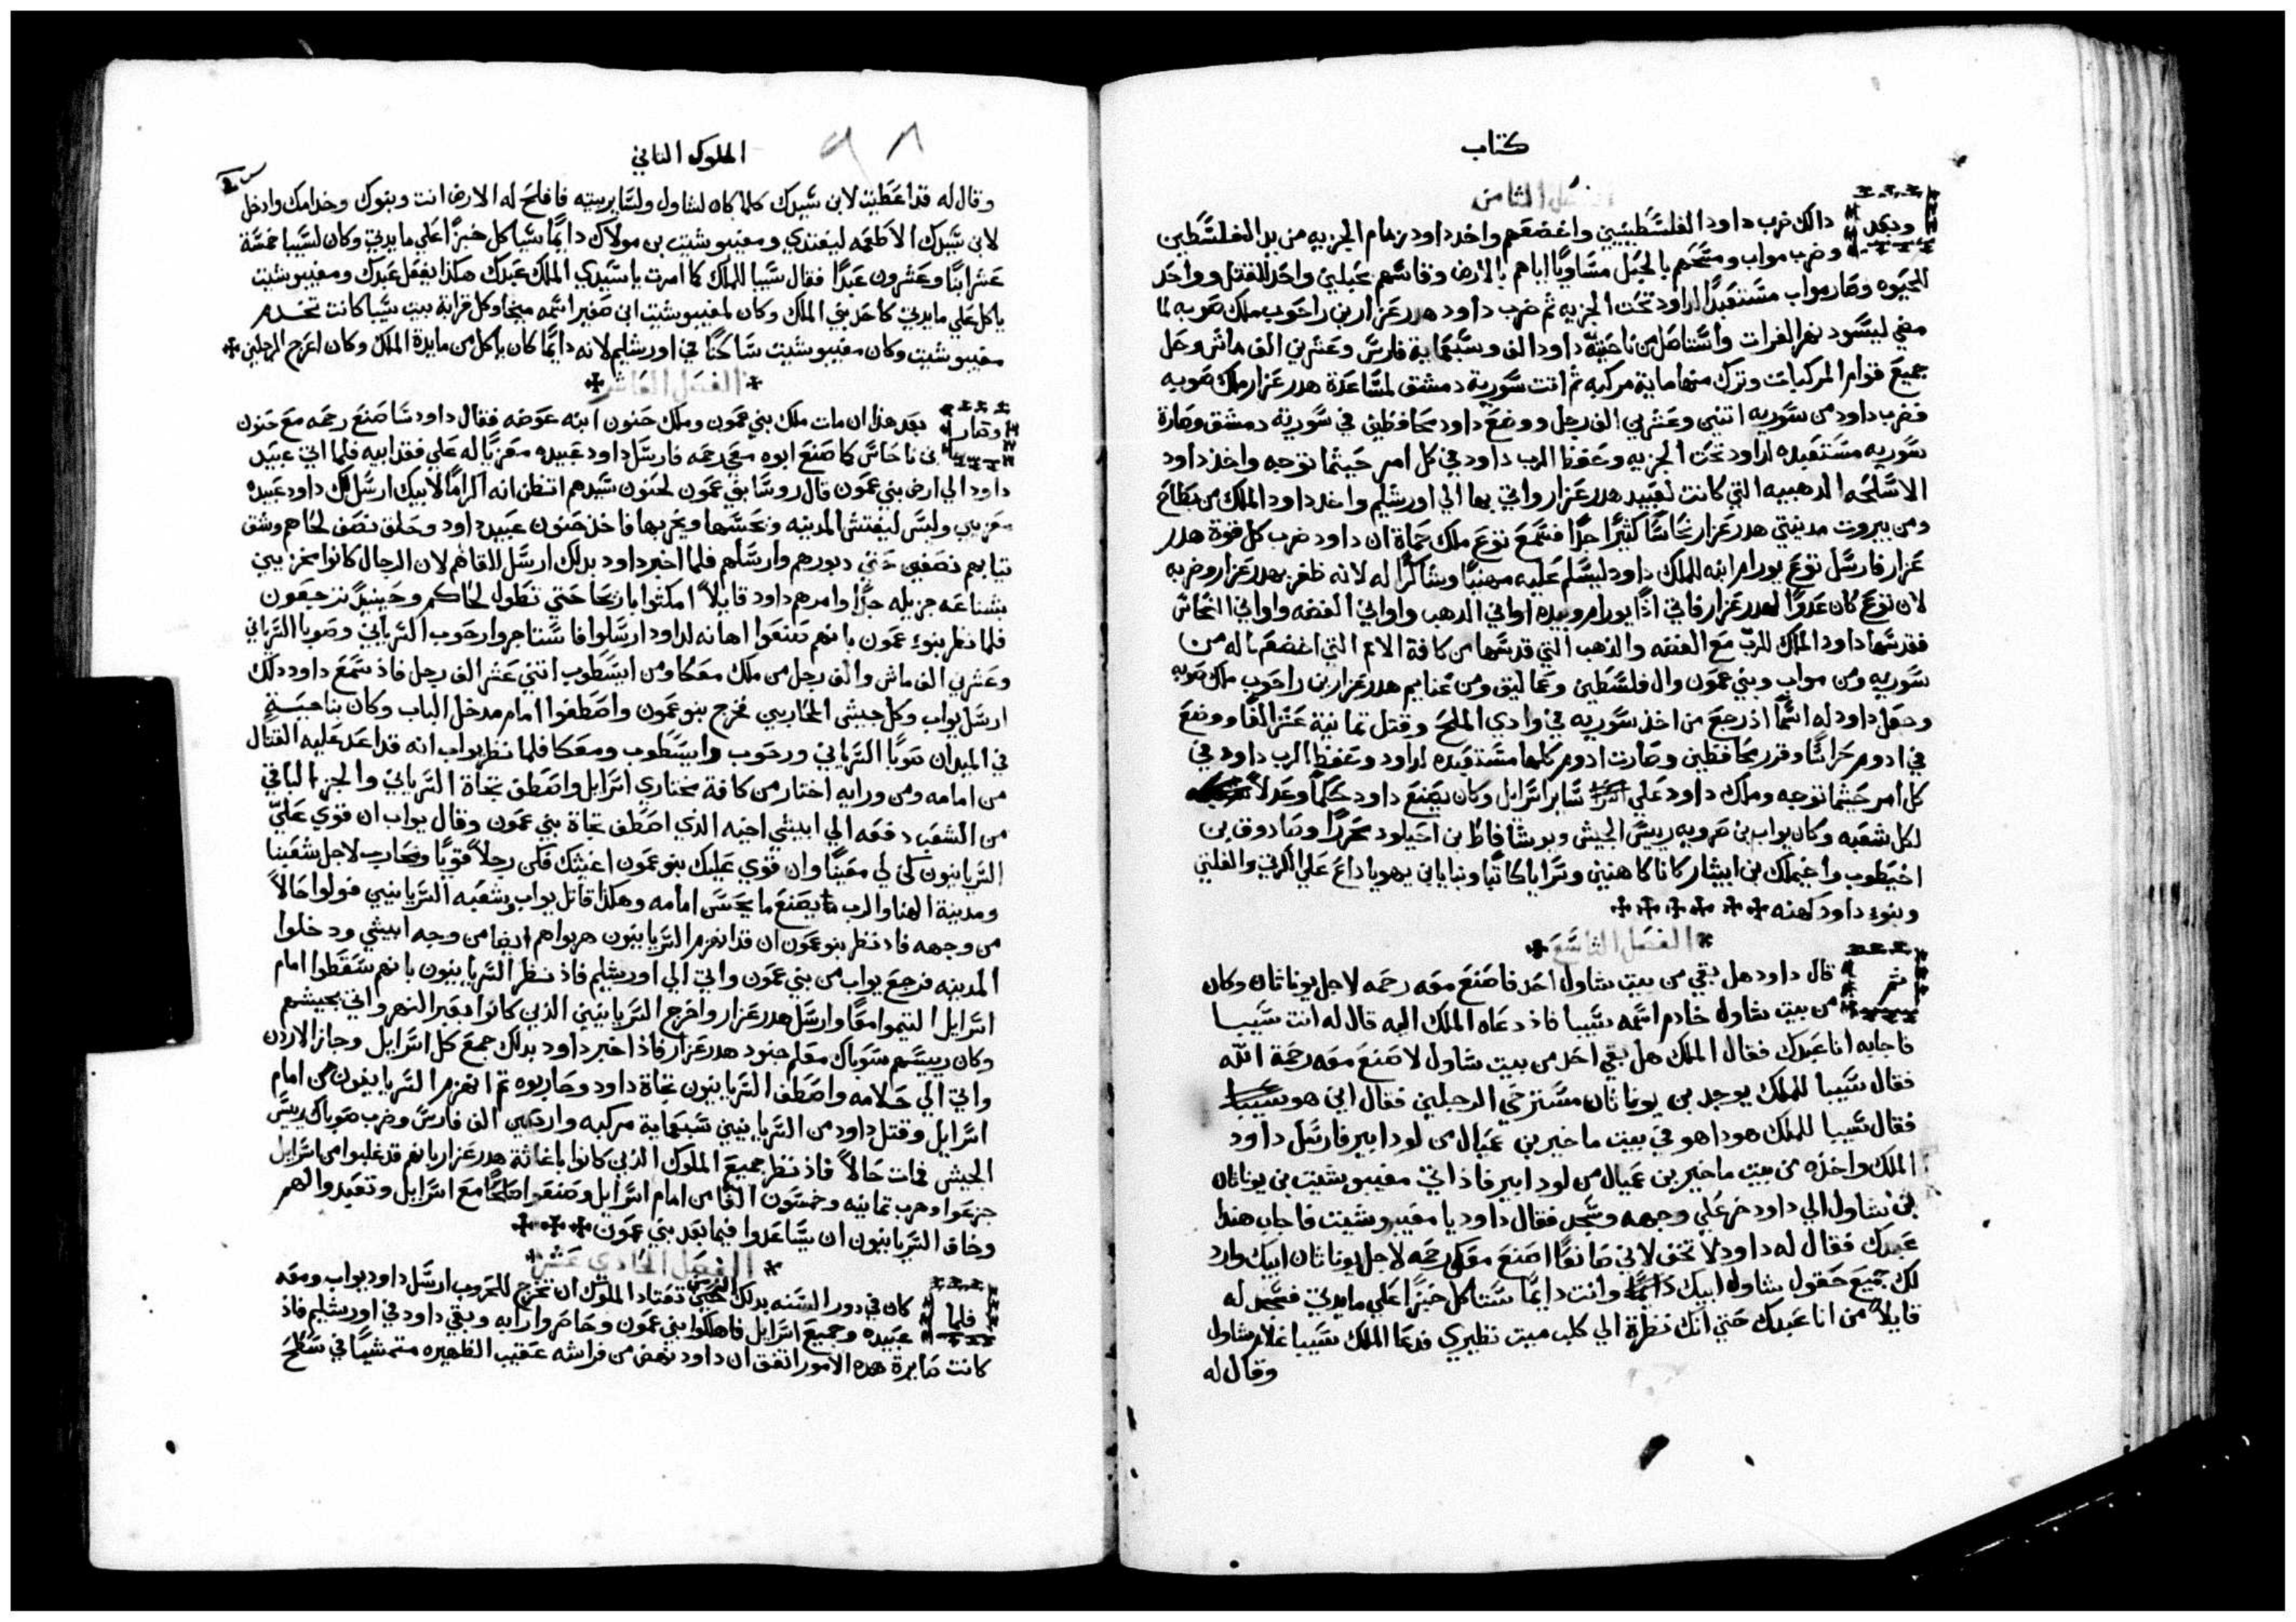 كتاب
الفصل الثامن
وبعد دالك ضرب داود الفلسطينيين واخضعهم واخد داود زمام الجزيه من يد الفلسطين
وضرب مواب ومسحهم بالحبل مساويًا اياهم بالارض وقاسهم بحبلين واحد للقتل وواحد
للحيوه وصار مواب مستعبدًا لداود تحت الجزيه ثم ضرب داود هدرعزار بن راحوب ملك صوبه لما
مضي ليسود نهر الفرات واستاصل من ناحيته داود الف وسبعماية فارس وعشرين الف ماش وحل
جميع قوام المركبات وترك منها ماية مركبه ثم اتت سورية دمشق لمساعدة هدرعزار ملك صوبه
فضرب داود من سوريه اتنين وعشرين الف رجل ووضع داود محافظين في سورية دمشق وصارة
سوريه مستعبده لداود تحت الجزيه وحفظ الرب داود في كل امر حيثما توجه واخد داود
الاسلحه الدهبيه التي كانت لعبيد هدرعزار واتي بها الي اورشليم واخد داود الملك من بطاح
ومن بيروت مدينتي هدرعزار نحاسًا كثيرًا جدًا فسمع توع ملك حماة ان داود ضرب كل قوة هدر
عزار فارسل توع يورام ابنه للملك داود ليسلم عليه مهنيًا وشاكرًا له لانه ظفر بهدرعزار وضربه
لان توع كان عدوًا لهدرعزار فاتي اذًا يورام وبيده اواني الدهب واواني الفضه واواني النحاس
فقدسها داود الملك للرب مع الفضه والذهب التي قدسها من كافة الامم التي اخضعها له من
سوريه ومن مواب وبني عمون وال فلسطين وعماليق ومن غنايم هدرعزار بن راحوب ملك صوبه
وجعل داود له اسمًا اذ رجع من اخذ سوريه في وادي الملح وقتل تمانية عشر الفًا ووضع
في ادوم حراسًا وقرر محافظين وصارت ادوم كلها مستعبده لداود وحفظ الرب داود في
كل امر حيثما توجه وملك داود علي ساير اسرايل وكان يصنع داود حكمًا وعدلاً
لكل شعبه وكان يواب بن صرويه رييس الجيش ويوشافاط بن احيلود محررًا وصادوق بن
اخيطوب واخيملك بن ابيتار كانا كاهنين وسرايا كاتبًا وبنايا بن يهوياداع علي الكريتي والفليتي
وبنوء داود كهنه
الفصل التاسع
ثم قال داود هل بقي من بيت شاول احد فاصنع معه رحمه لاجل يوناثان وكان
من بيت شاول خادم اسمه سيبا فاذ دعاه الملك اليه قال له انت سيبا
فاجابه انا عبدك فقال الملك هل بقي احد من بيت شاول لاصنع معه رحمة الله
فقال سيبا للملك يوجد بن يوناثان مسترخي الرجلين فقال اين هو
فقال سيبا للملك هودا هو في بيت ماخير بن عميال من لودابير فارسل داود
الملك واخذه من بيت ماخير بن عميال من لودابير فاذ اتي مفيبوشيت بن يوناثان
بن شاول الي داود خر علي وجهه وسجد فقال داود يا مفيبوشيت فاجاب هندا
عبدك فقال له داود لا تخف لاني صانعًا اصنع معك رحمه لاجل يوناثان ابيك وارد
لك جميع حقول شاول ابيك وانت دايمًا ستاكل خبزًا علي مايدتي فسجد له
قايلاً من انا عبدك حتي انك نظرة الي كلب ميت نظيري فدعا الملك سيبا غلام شاول
وقال له
الملوك الثاني
٩٨
وقال له قد اعطيت لابن سيدك كلما كان لشاول ولساير بيته فافلح له الارض انت وبنوك وخدامك وادخل
لابن سيدك الاطعمه ليغتدي ومفيبوشيت بن مولاك دايمًا سياكل خبزًا علي مايدتي وكان لسيبا خمسة
عشر ابنًا وعشرون عبدًا فقال سيبا للملك كما امرت يا سيدي الملك عبدك هكذا يفعل عبدك ومفيبوشيت
ياكل علي مايدتي كاحد بني الملك وكان لمفيبوشيت ابن صغير اسمه ميخا وكل قرابة بيت سيبا كانت تخدم
مفيبوشيت وكان مفيبوشيت ساكنًا في اورشليم لانه دايمًا كان ياكل من مايدة الملك وكان اعرج الرجلين
الفصل العاشر
وصار بعد هذا ان مات ملك بني عمون وملك حنون ابنه عوضه فقال داود سا صنع رحمه مع حنون
بن ناحاس كما صنع ابوه معي رحمه فارسل داود عبيده معزيًا له علي فقد ابيه فلما اتي عبيد
داود الي ارض بني عمون قال روسا بني عمون لحنون سيدهم اتظن انه اكرامًا لابيك ارسل لك داود عبيده
معزيين وليس ليفتش المدينه ويجسها ويخربها فاخذ حنون عبيد داود وحلق نصف لحاهم وشق
تيابهم نصفين حتي دبورهم وارسلهم فلما اخبر داود بدلك ارسل للقاهم لان الرجال كانوا مخزيين
بشناعه جزيله جدًا وامرهم داود قايلاً امكثوا باريحا حتي تطول لحاكم وحينيدٍ ترجعون
فلما نظر بنوء عمون بانهم صنعوا اهانه لداود ارسلوا فاستاجروا رحوب السرياني وصوبا السرياني
وعشرين الف ماش والف رجل من ملك معكا ومن ايسطوب اتني عشر الف رجل فاذ سمع داود دلك
ارسل يواب وكل جيش المحاربين فخرج بنو عمون واصطفوا امام مدخل الباب وكان بناحيةٍ
في الميدان صوبا السرياني ورحوب وايسطوب ومعكا فلما نظر يواب انه قد اعد عليه القتال
من امامه ومن ورايه اختار من كافة مختاري اسرايل واصطف تجاة السرياني والجزء الباقي
من الشعب دفعه الي ابيشي اخيه الذي اصطف تجاة بني عمون وقال يواب ان قوي عليّ
السريانيون كن لي معينًا وان قوي عليك بنو عمون اعينك فكن رجلاً قويًا ونحارب لاجل شعبنا
ومدينة الهنا والرب يصنع ما يحسن امامه وهكذا قاتل يواب وشعبه السريانيين فولوا حالاً
من وجهه فاذ نظر بنو عمون ان قد انهزم السريانيون هربوا هم ايضا من وجه ابيشي ودخلوا
المدينه فرجع يواب من بني عمون واتي الي اورشليم فاذ نظر السريانيون بانهم سقطوا امام
اسرايل التيموا معًا وارسل هدرعزار واخرج السريانيين الذين كانوا بعبر النهر واتي بجيشهم
وكان رييسهم سوباك معلم جنود هدرعزار فاذ اخبر داود بدلك جمع كل اسرايل وجاز الاردن
واتي الي حلامه واصطف السريانيون تجاة داود وحاربوه ثم انهزم السريانيون من امام
اسرايل وقتل داود من السريانيين سبعماية مركبه واربعين الف فارس وضرب صوباك رييس
الجيش فمات حالاً فاذ نظر جميع الملوك الذين كانوا باغاثة هدرعزار بانهم قد غلبوا من اسرايل
جزعوا وهرب تمانيه وخمسون الفًا من امام اسرايل وصنعوا صلحًا مع اسرايل وتعبدوا لهم
وخاف السريانيون ان يساعدوا فيما بعد بني عمون
الفصل الحادي عشر
فلما كان في دور السنه بدلك الحين تعتاد الملوك ان تخرج للحروب ارسل داود يواب ومعه
عبيده وجميع اسرايل فاهلكوا بني عمون وحاصروا رابه وبقي داود في اورشليم فاذ
كانت صايرة هده الامور اتفق ان داود نهض من فراشه عقيب الظهيره متمشيًا في سطح